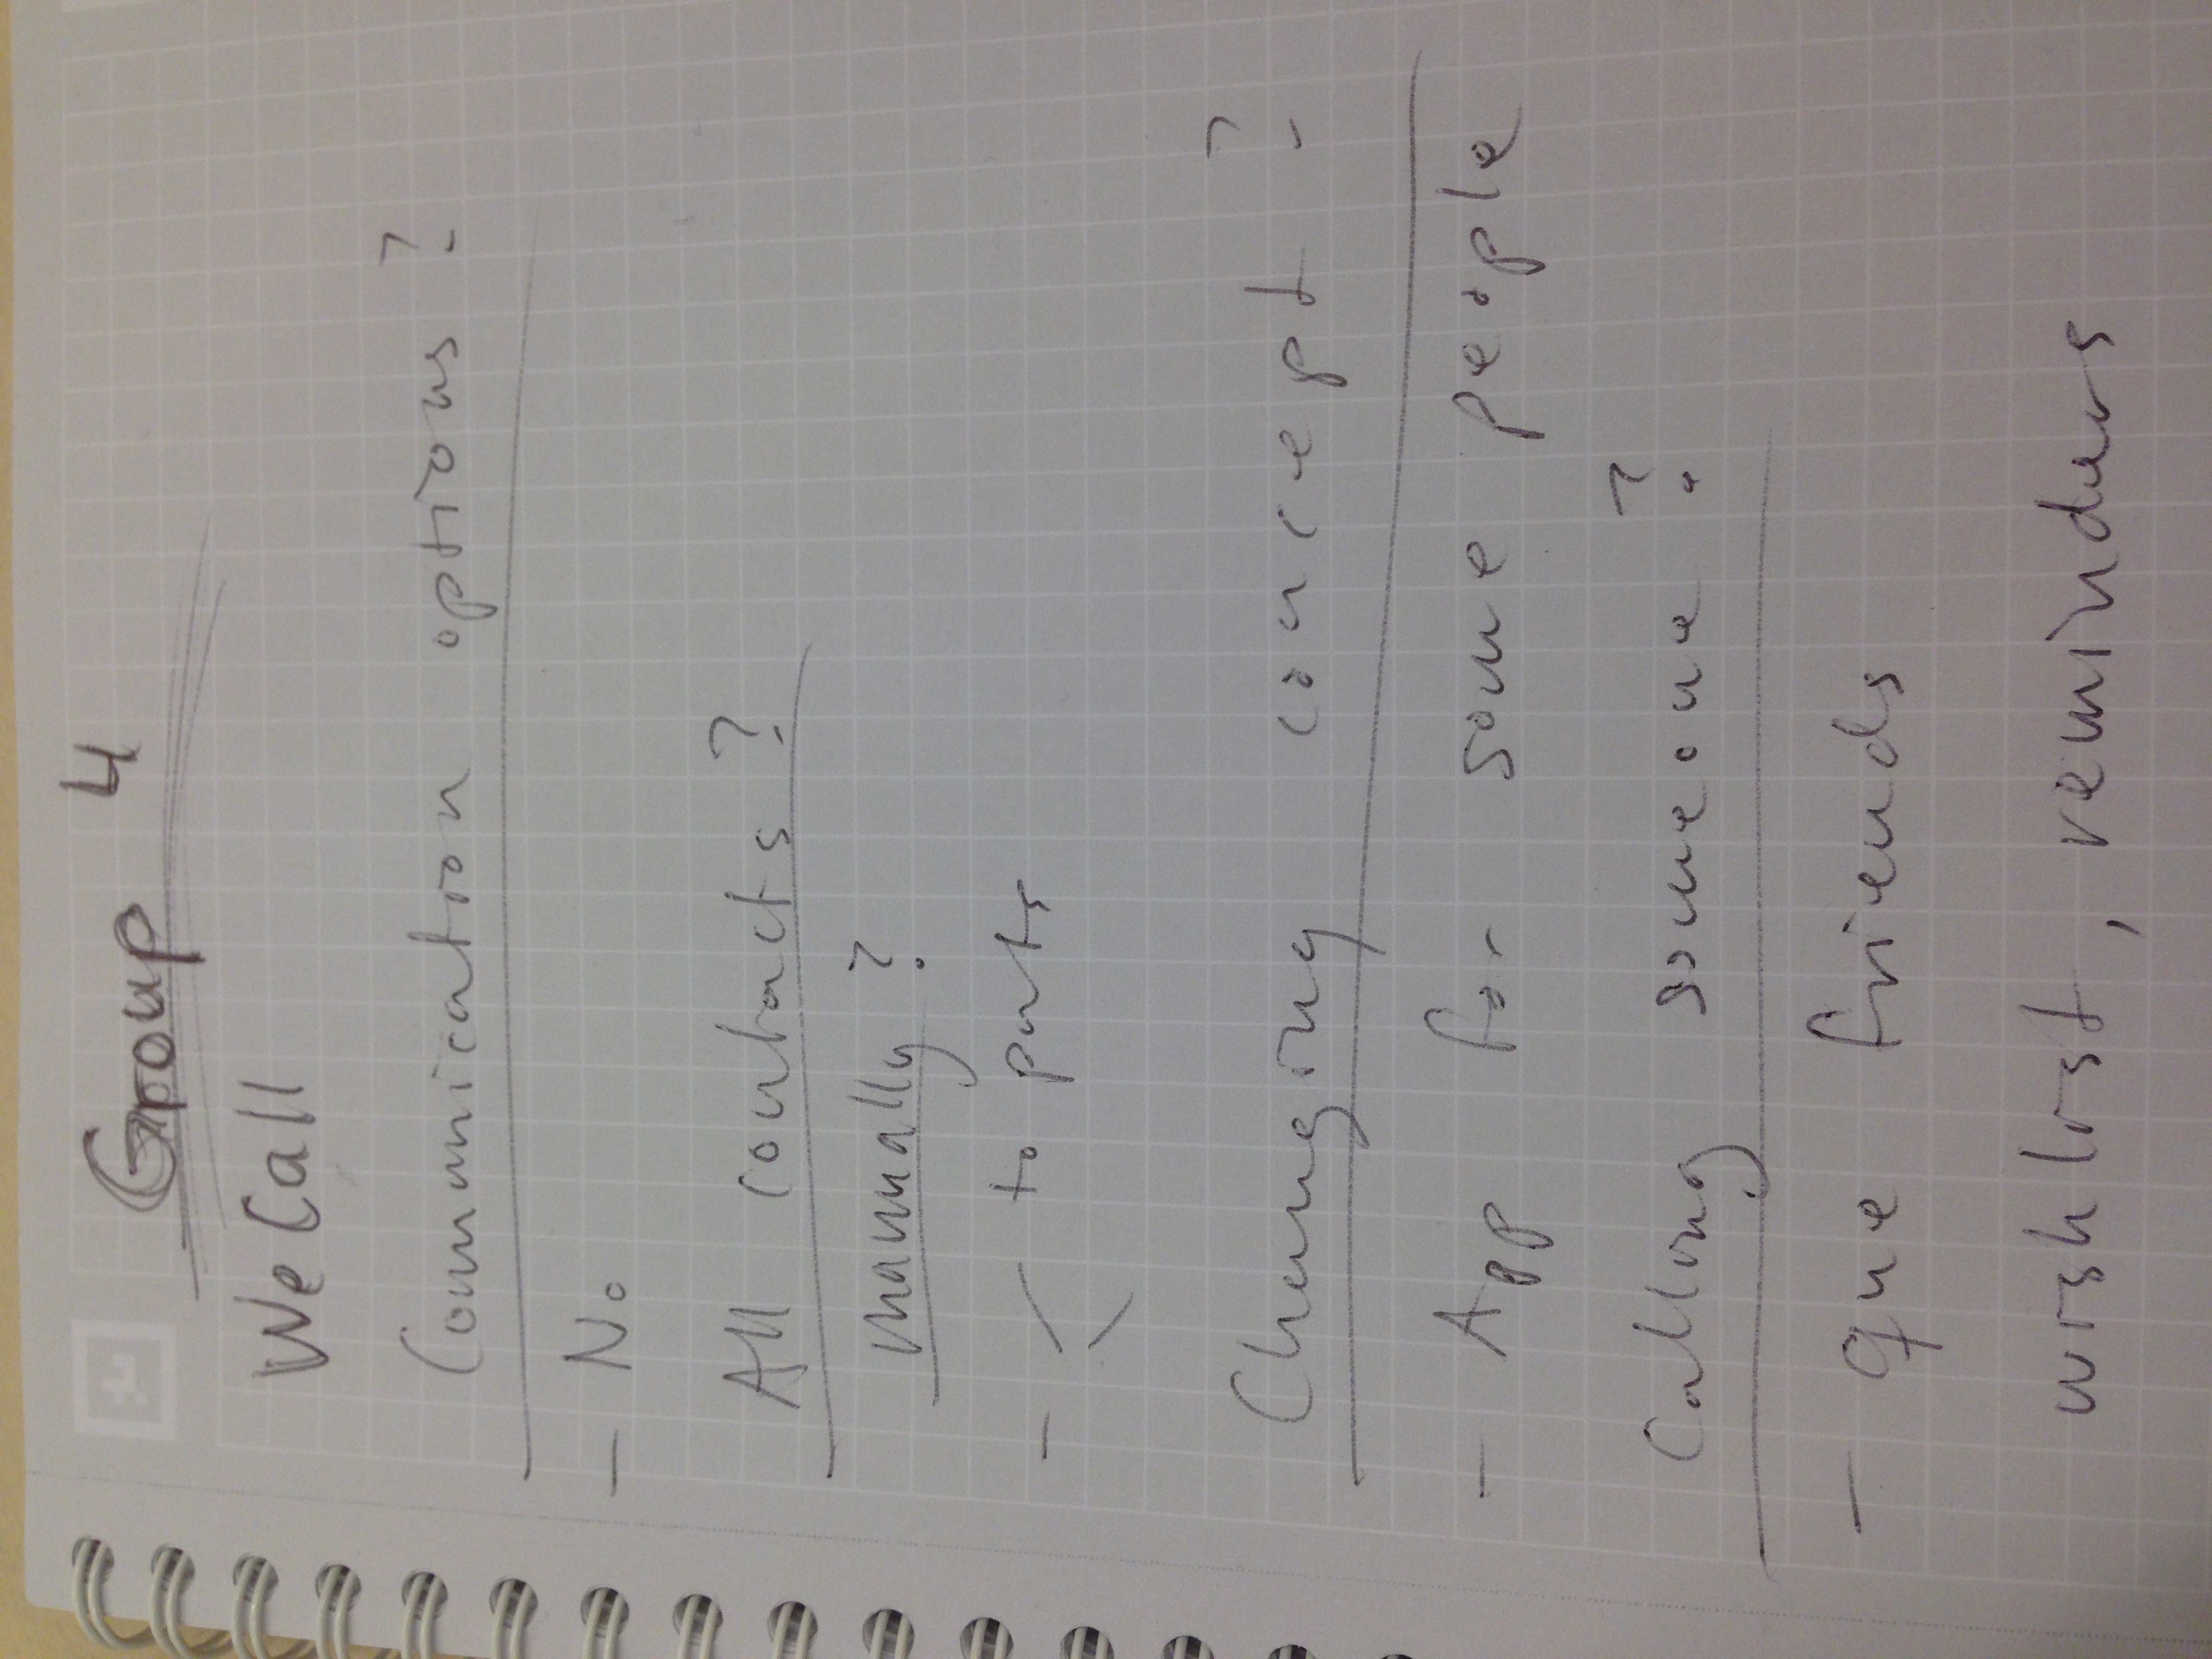 Group 4
WeCall
Communication options?
- No
All contacts?
manually?
- < to parts
Changing concept?
- App for some people
Calling someone?
- que friends
wishlist, reminders